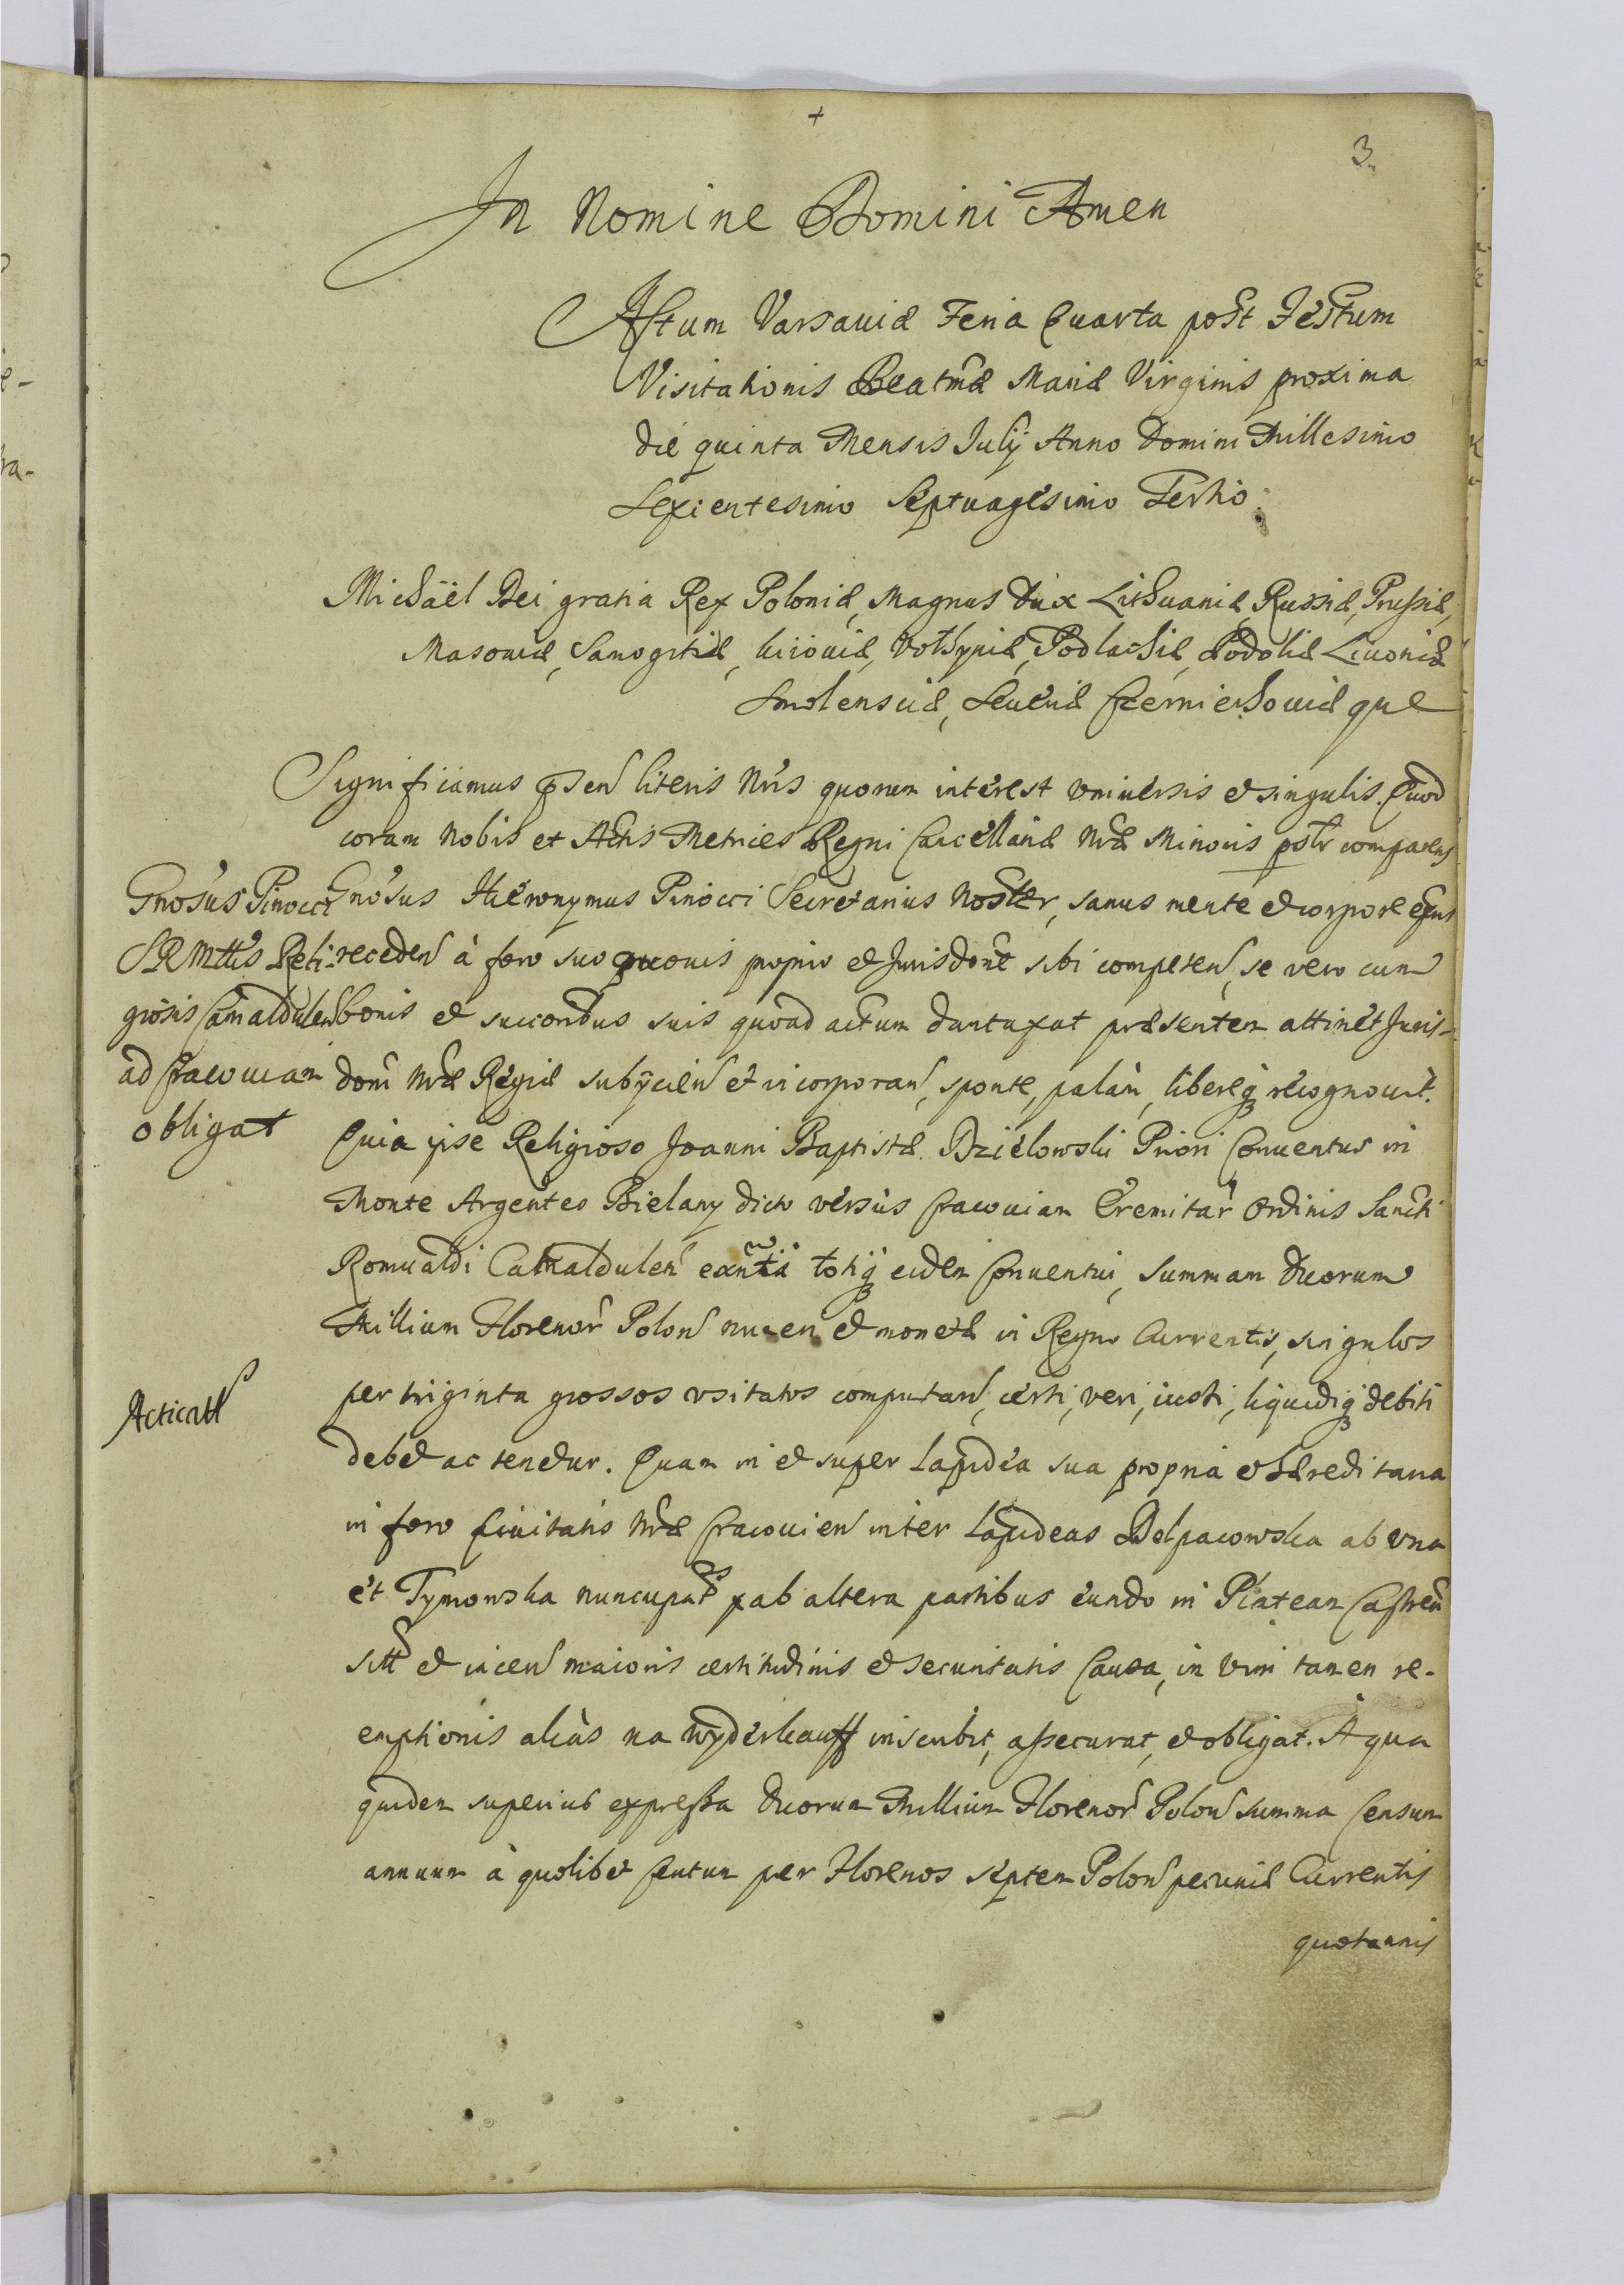 +
3.
In Nomine Domini Amen
Actum Varsaviæ Feria Quarta post Festum
Visitationis Beatmæ Mariæ Virginis proxima
die quinta Mensis Julij Anno Domini Millesimo
Sexcentesimo Septuagesimo Tertio.
Michäel Dei gratia Rex Poloniæ, Magnus Dux Lithuaniæ, Russiæ, Prussiæ,
Masoviæ, Samogitiæ, Kiioviæ, Volhyniæ, Podlachiæ, Podoliæ Livoniæ
Smolensciæ, Severiæ Czerniechoviæ que
Significamus psen literis Nris quorum interest universis et singulis. Quod
coram Nobis et Actis Metrices Regni Cancellariæ Nræ Minoris pslr comparens
Gnosus Hieronymus Pinocci Secretarius Noster, sanus mente et corpore exns
receden à foro suo quovis proprio et Jurisdone sibi competen, se vero cum
bonis et succoribus suis quoad actum dantaxat præsentem attinet Juris-
doni Nræ Regiæ subijcien et incorporan, sponte, palàm, libereq recognovit.
Quia ipse Religioso Joanni Baptistæ Dzielowski Priori Conventus in
Monte Argenteo Bielany dicto versùs Cracoviam Eremitar Ordinis Sancti
Romualdi Camaldulen totiq eidem Conventui, summam duorum
Millium Florenor Polon numeri et monetæ in Regno Currentis, singulos
per triginta grossos usitatos computan, certi, veri, iusti, liquidiq debiti
debet ac tenetur. Quam in et super Lapidea sua propria et hæreditaria
in foro Civitatis Nræ Cracovien inter Lapideas Delpacowska ab una
et Tymowska nuncupat ab altera partibus eundo in Plateam Castren
sitt et iacen maioris certitudinis et securitatis Causa, in vim tamen re-
emptionis aliàs na wyderkauff inscribit, assecurat, et obligat. A qua
quidem superius expressa duorum Millium Florenor Polon summa Censum
annuum à quolibet Centum per Florenos septem Polon pecuniæ Currentis
quotannis
Gnosus Pinocci
SRMttis Reli-
giosis Camaldulen
ad Cracoviam
obligat
Acticatt